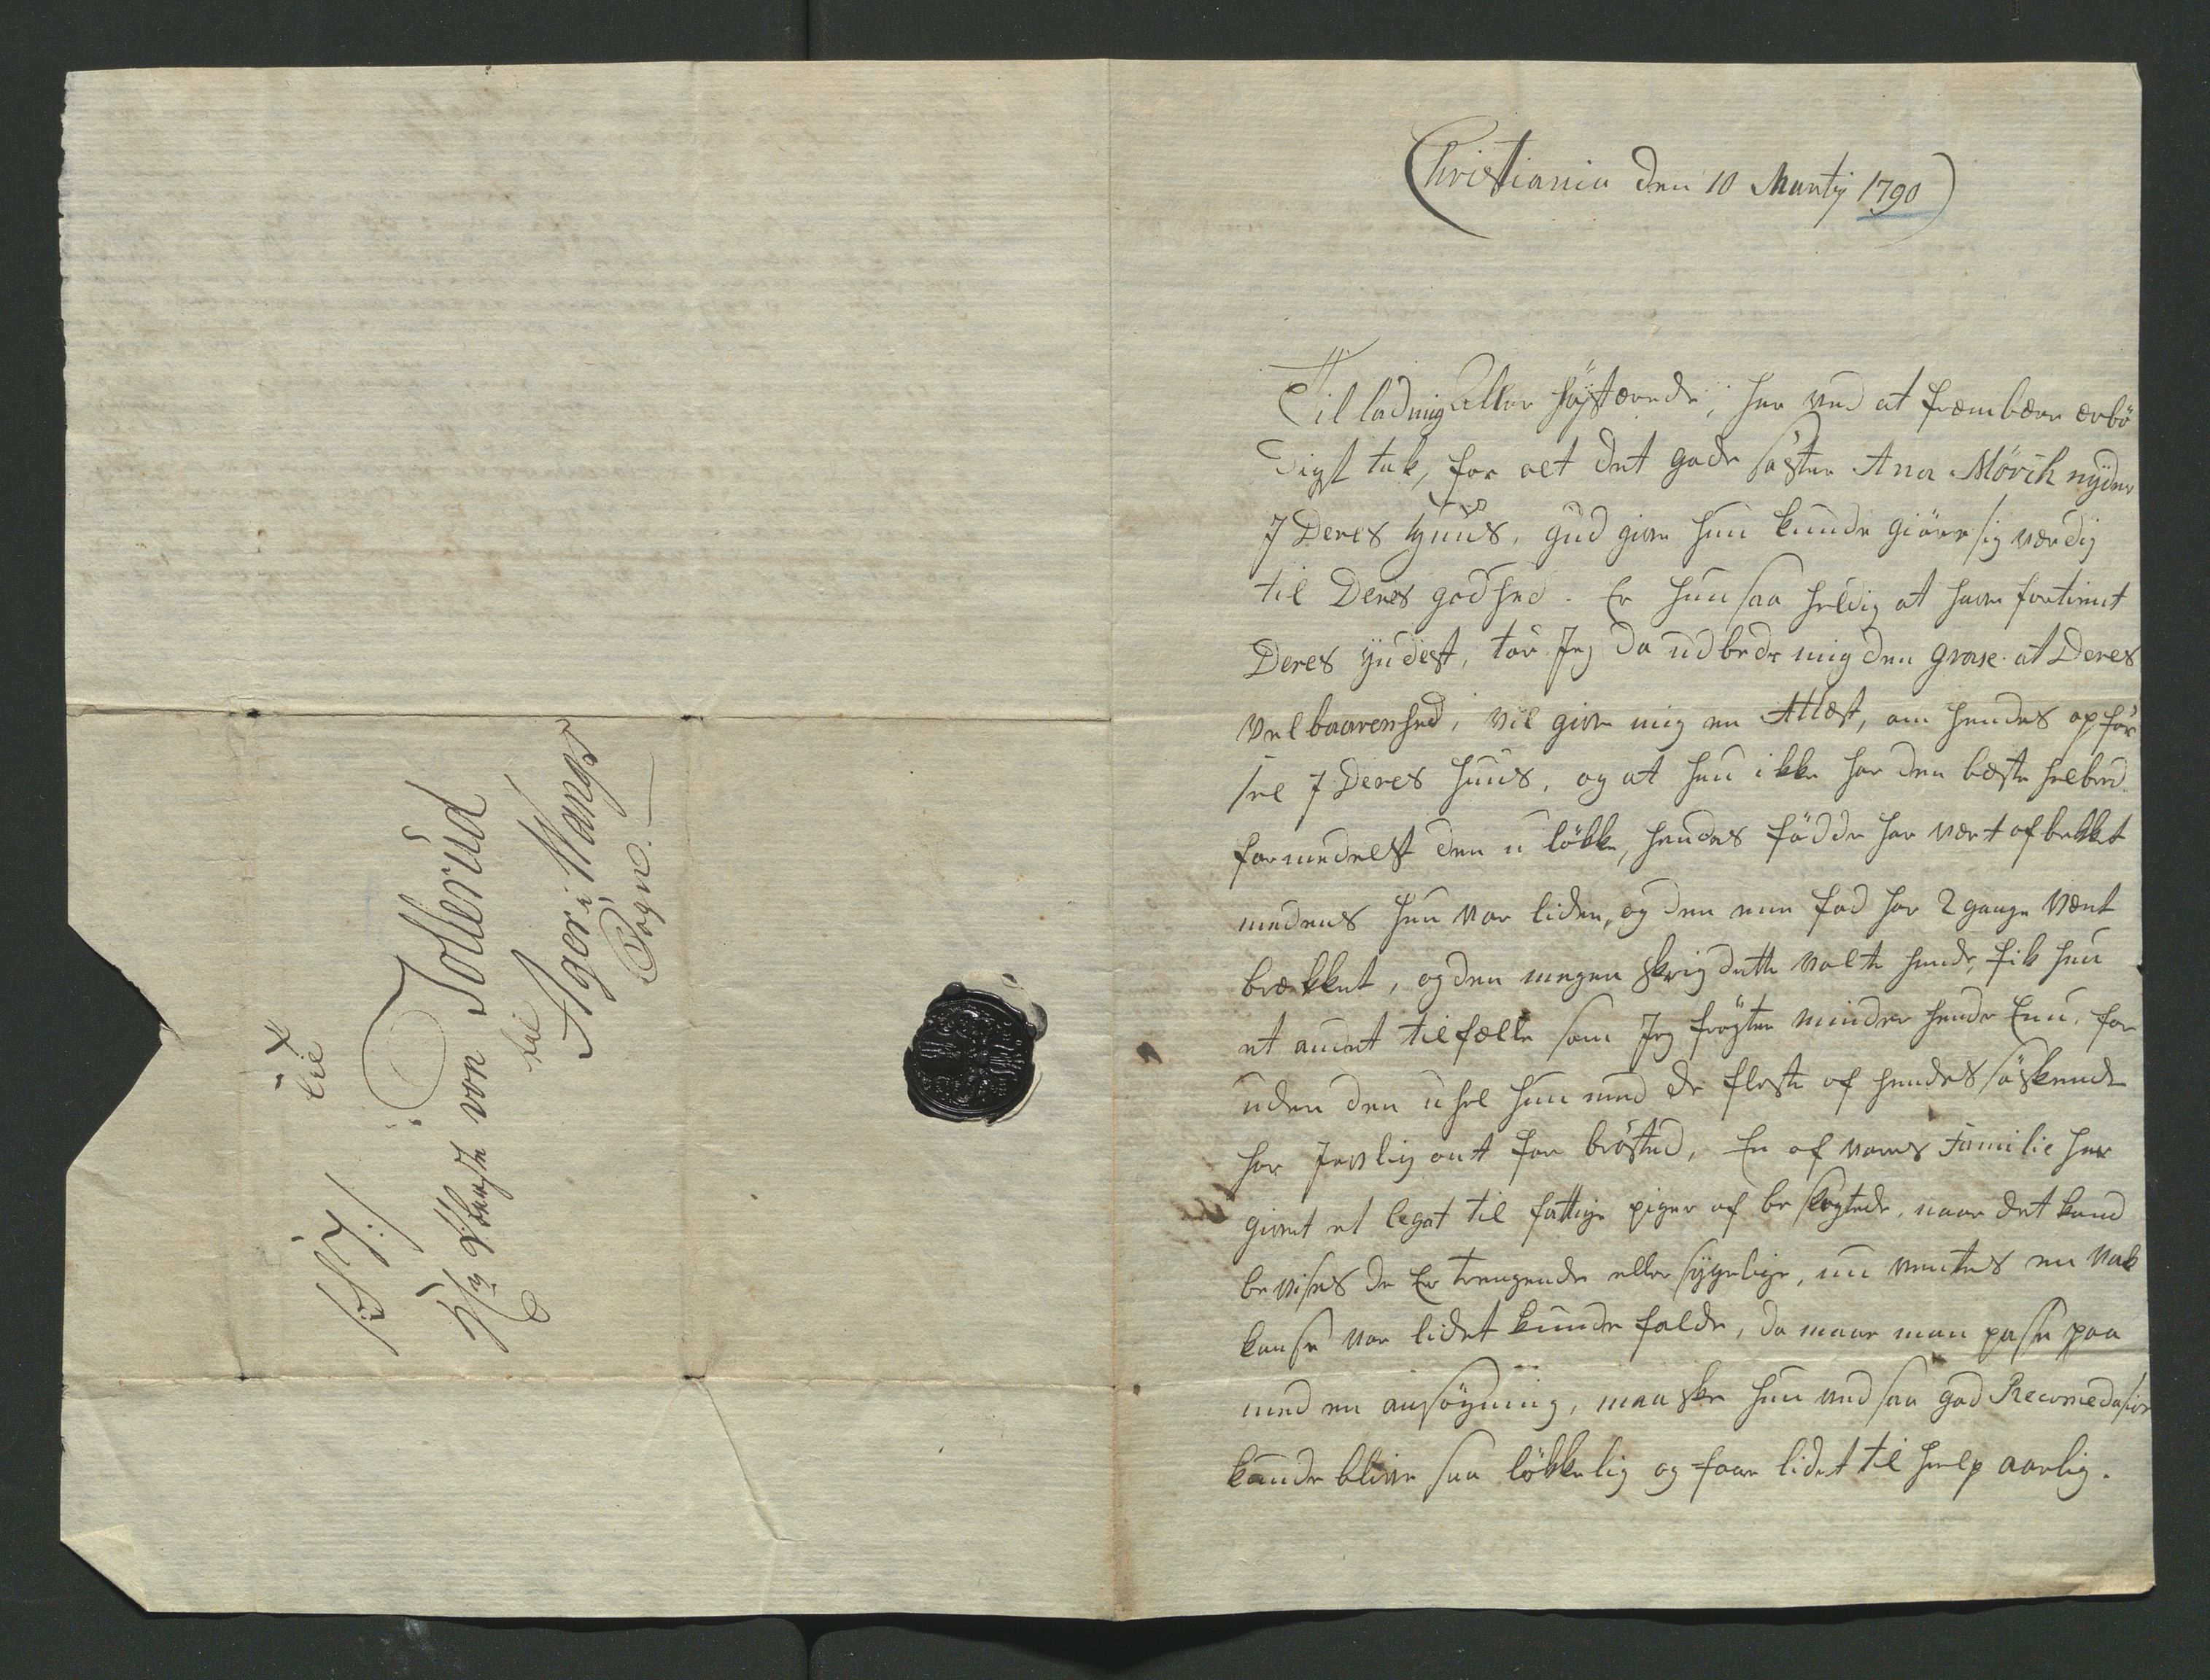 Christiania den 10 Martij 1790
Til lad mig Aller höjstærede, her ved at frembære ærbö
digst tak, for alt det gode söster Ana Mörch nyder
I Deres Huus, gud give hun kunde giöre sig værdig
til Deres godhed. Er hun saa heldig at have fortient
Deres yndest, tör Jeg da udbede mig den grase at Deres
velbaarenhed, vil give mig en Attæst, om hendes opför
sel I Deres huus, og at hun ikke har den bæste helbred
formedelst den u lökke, hendes födder har vært afbrekket
medens hun var liden, og den ene fod har 2 gange vært
brækket, og den megen skrig dette volte hende, fik hun
et andet tilfælle som Jeg frögter minder hende Enu, for
uden den uhel hun med de fleste af hendes söskende
har Jevnlig ont for brösted, En af vores Familie har
givet et legat til fattige piger af be slegtede, naar det kand
bevises de Er trengende eller sygelige, nu ventes en vak
kanse var lidet kunde falde, da maae man passe paa
med en ansögning, maa ske hun ved saa god Recomedasion
kunde blive saa lökkelig og faae lidet til hielp aarlig.
til
S. T.
von Tollerud
til
Ager i Wangs
Sogn.